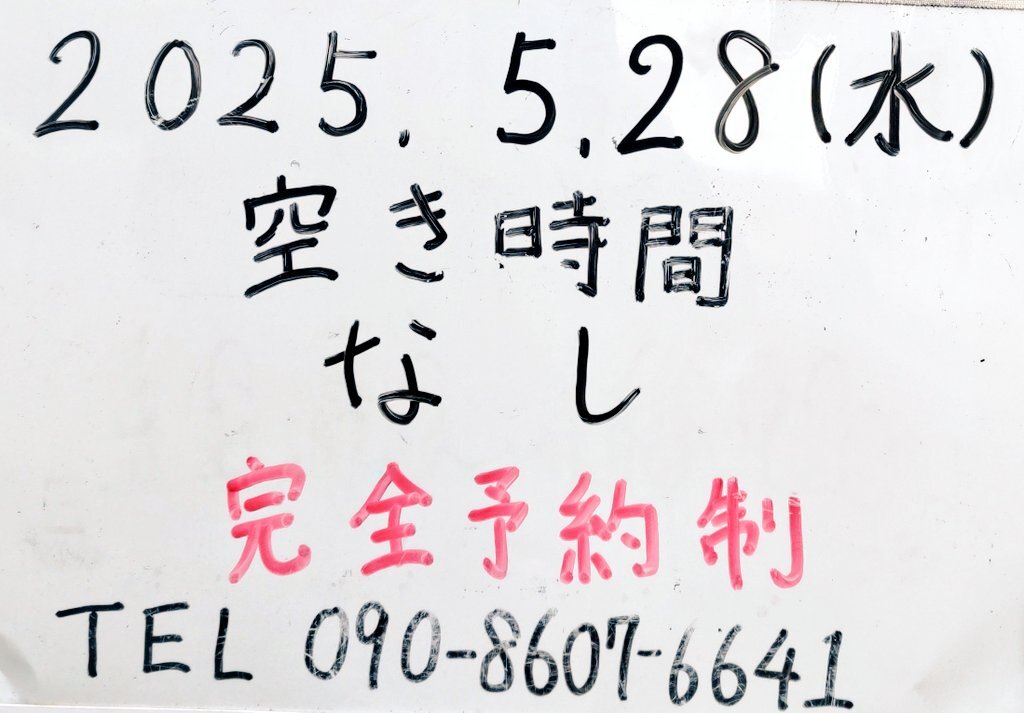 2025.5.28(水)
空き時間
なし
完全予約制
TEL 090-8607-6641